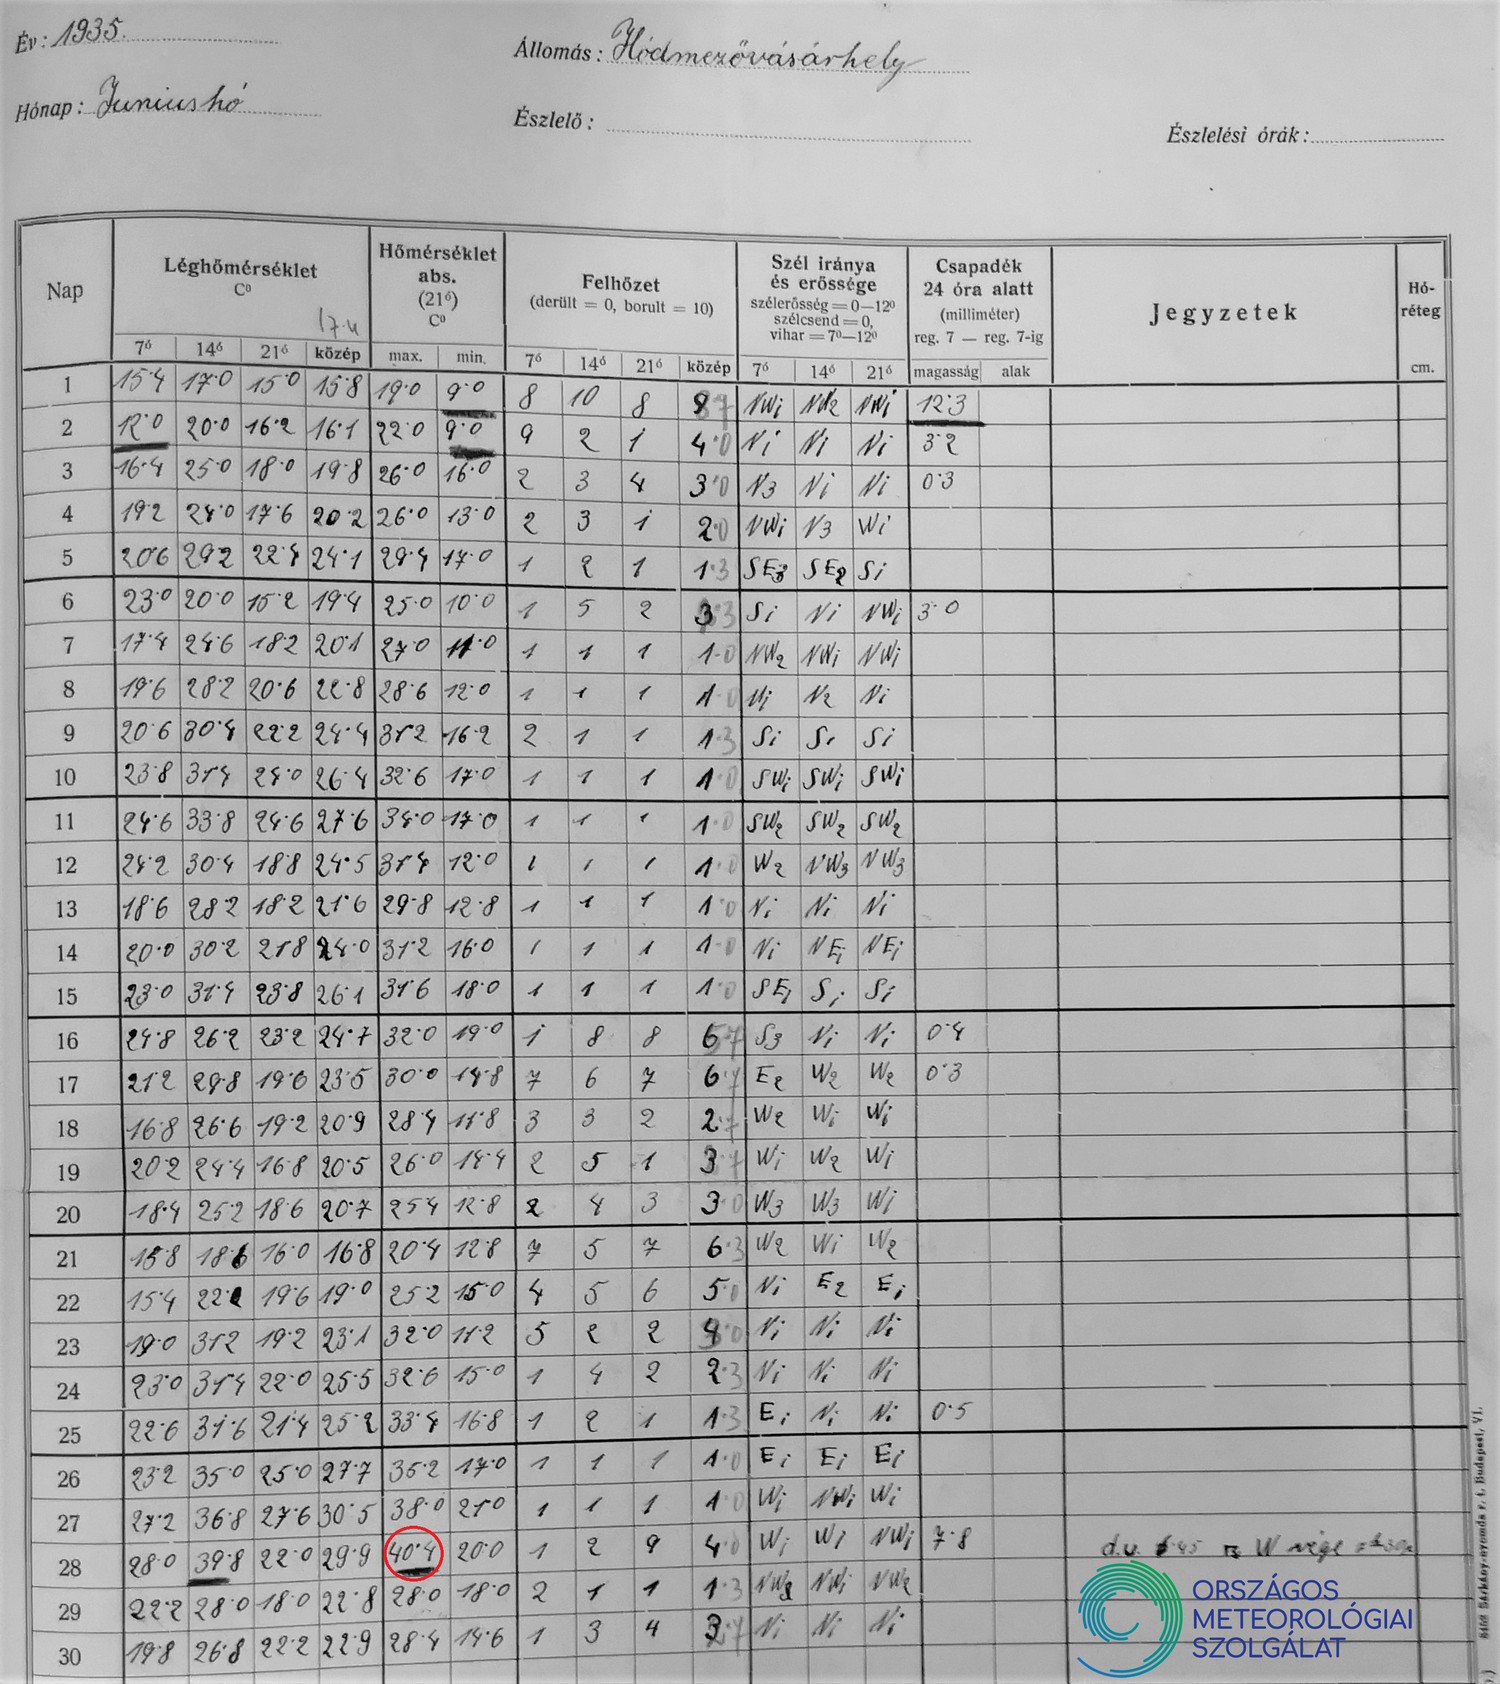 Év: 1935.
Állomás: Hódmezővásárhely
Hónap: Junius hó
Észlelő:
Észlelési órák:
Nap
Léghőmérséklet
C⁰
Hőmérséklet
abs.
(21ó)
C⁰
Felhőzet
(derült = 0, borult = 10)
Szél iránya
és erőssége
szélerősség = 0—12⁰
szélcsend = 0,
vihar = 7⁰—12⁰
Csapadék
24 óra alatt
(milliméter)
reg. 7 — reg. 7-ig
Jegyzetek
Hó-
réteg
7ó 14ó 21ó közép max. min. 7ó 14ó 21ó közép 7ó 14ó 21ó magasság alak cm.
1 15·4 17·0 15·0 15·8 19·0 9·0 8 10 8 NWi NWi 12·3
2 12·0 20·0 16·2 16·1 22·0 9·0 9 2 1 4·0 Ni Ni Ni 3·2
3 16·4 25·0 18·0 19·8 26·0 16·0 2 3 4 3·0 N3 Ni Ni 0·3
4 19·2 24·0 17·6 20·2 26·0 13·0 2 3 1 2·0 NWi N3 Wi
5 20·6 29·2 22·4 24·1 29·4 17·0 1 2 1 1·3 SE3 SE2 Si
6 23·0 20·0 15·2 19·4 25·0 10·0 1 5 2 3·3 Si Ni NWi 3·0
7 17·4 24·6 18·2 20·1 27·0 11·0 1 1 1 1·0 NW2 NWi NWi
8 19·6 28·2 20·6 22·8 28·6 12·0 1 1 1 1·0 Ni N2 Ni
9 20·6 30·4 22·2 24·4 31·2 16·2 2 1 1 1·3 Si Si Si
10 23·8 31·4 24·0 26·4 32·6 17·0 1 1 1 1·0 SWi SWi SWi
11 24·6 33·8 24·6 27·6 34·0 17·0 1 1 1 1·0 SW2 SW2 SW2
12 24·2 30·4 18·8 24·5 31·4 12·0 1 1 1 1·0 W2 NW3 NW3
13 18·6 28·2 18·2 21·6 29·8 12·8 1 1 1 1·0 Ni Ni Ni
14 20·0 30·2 21·8 24·0 31·2 16·0 1 1 1 1·0 Ni NEi NEi
15 23·0 31·4 23·8 26·1 31·6 18·0 1 1 1 1·0 SEi Si Si
16 24·8 26·2 23·2 24·7 32·0 19·0 1 8 8 S3 Ni Ni 0·4
17 21·2 29·8 19·6 23·5 30·0 14·8 7 6 7 6·7 E2 W2 W2 0·3
18 16·8 26·6 19·2 20·9 28·4 11·8 3 3 2 2·7 W2 Wi Wi
19 20·2 24·4 16·8 20·5 26·0 14·4 2 5 1 Wi W2 Wi
20 18·4 25·2 18·6 20·7 25·4 12·8 2 4 3 3·0 W3 W3 Wi
21 15·8 18·6 16·0 16·8 20·4 12·8 7 5 7 6·3 W2 Wi W2
22 15·4 19·6 19·0 25·2 15·0 4 5 6 5·0 Ni E2 Ei
23 19·0 31·2 19·2 23·1 32·0 11·2 5 2 2 Ni Ni Ni
24 23·0 31·4 22·0 25·5 32·6 15·0 1 4 2 2·3 Ni Ni Ni
25 22·6 31·6 21·4 25·2 33·4 16·8 1 2 1 1·3 Ei Ni Ni 0·5
26 23·2 35·0 25·0 27·7 35·2 17·0 1 1 1 1·0 Ei Ei Ei
27 27·2 36·8 27·6 30·5 38·0 21·0 1 1 1 1·0 Wi NWi Wi
28 28·0 39·8 22·0 29·9 40·4 20·0 1 2 9 4·0 Wi Wi NWi 7·8 d.u. W vége
29 22·2 28·0 18·0 22·8 28·0 18·0 2 1 1 1·3 NWi NW2
30 19·8 26·8 22·2 22·9 28·4 14·6 1 3 4 Ni Ni Ni
ORSZÁGOS
METEOROLÓGIAI
SZOLGÁLAT